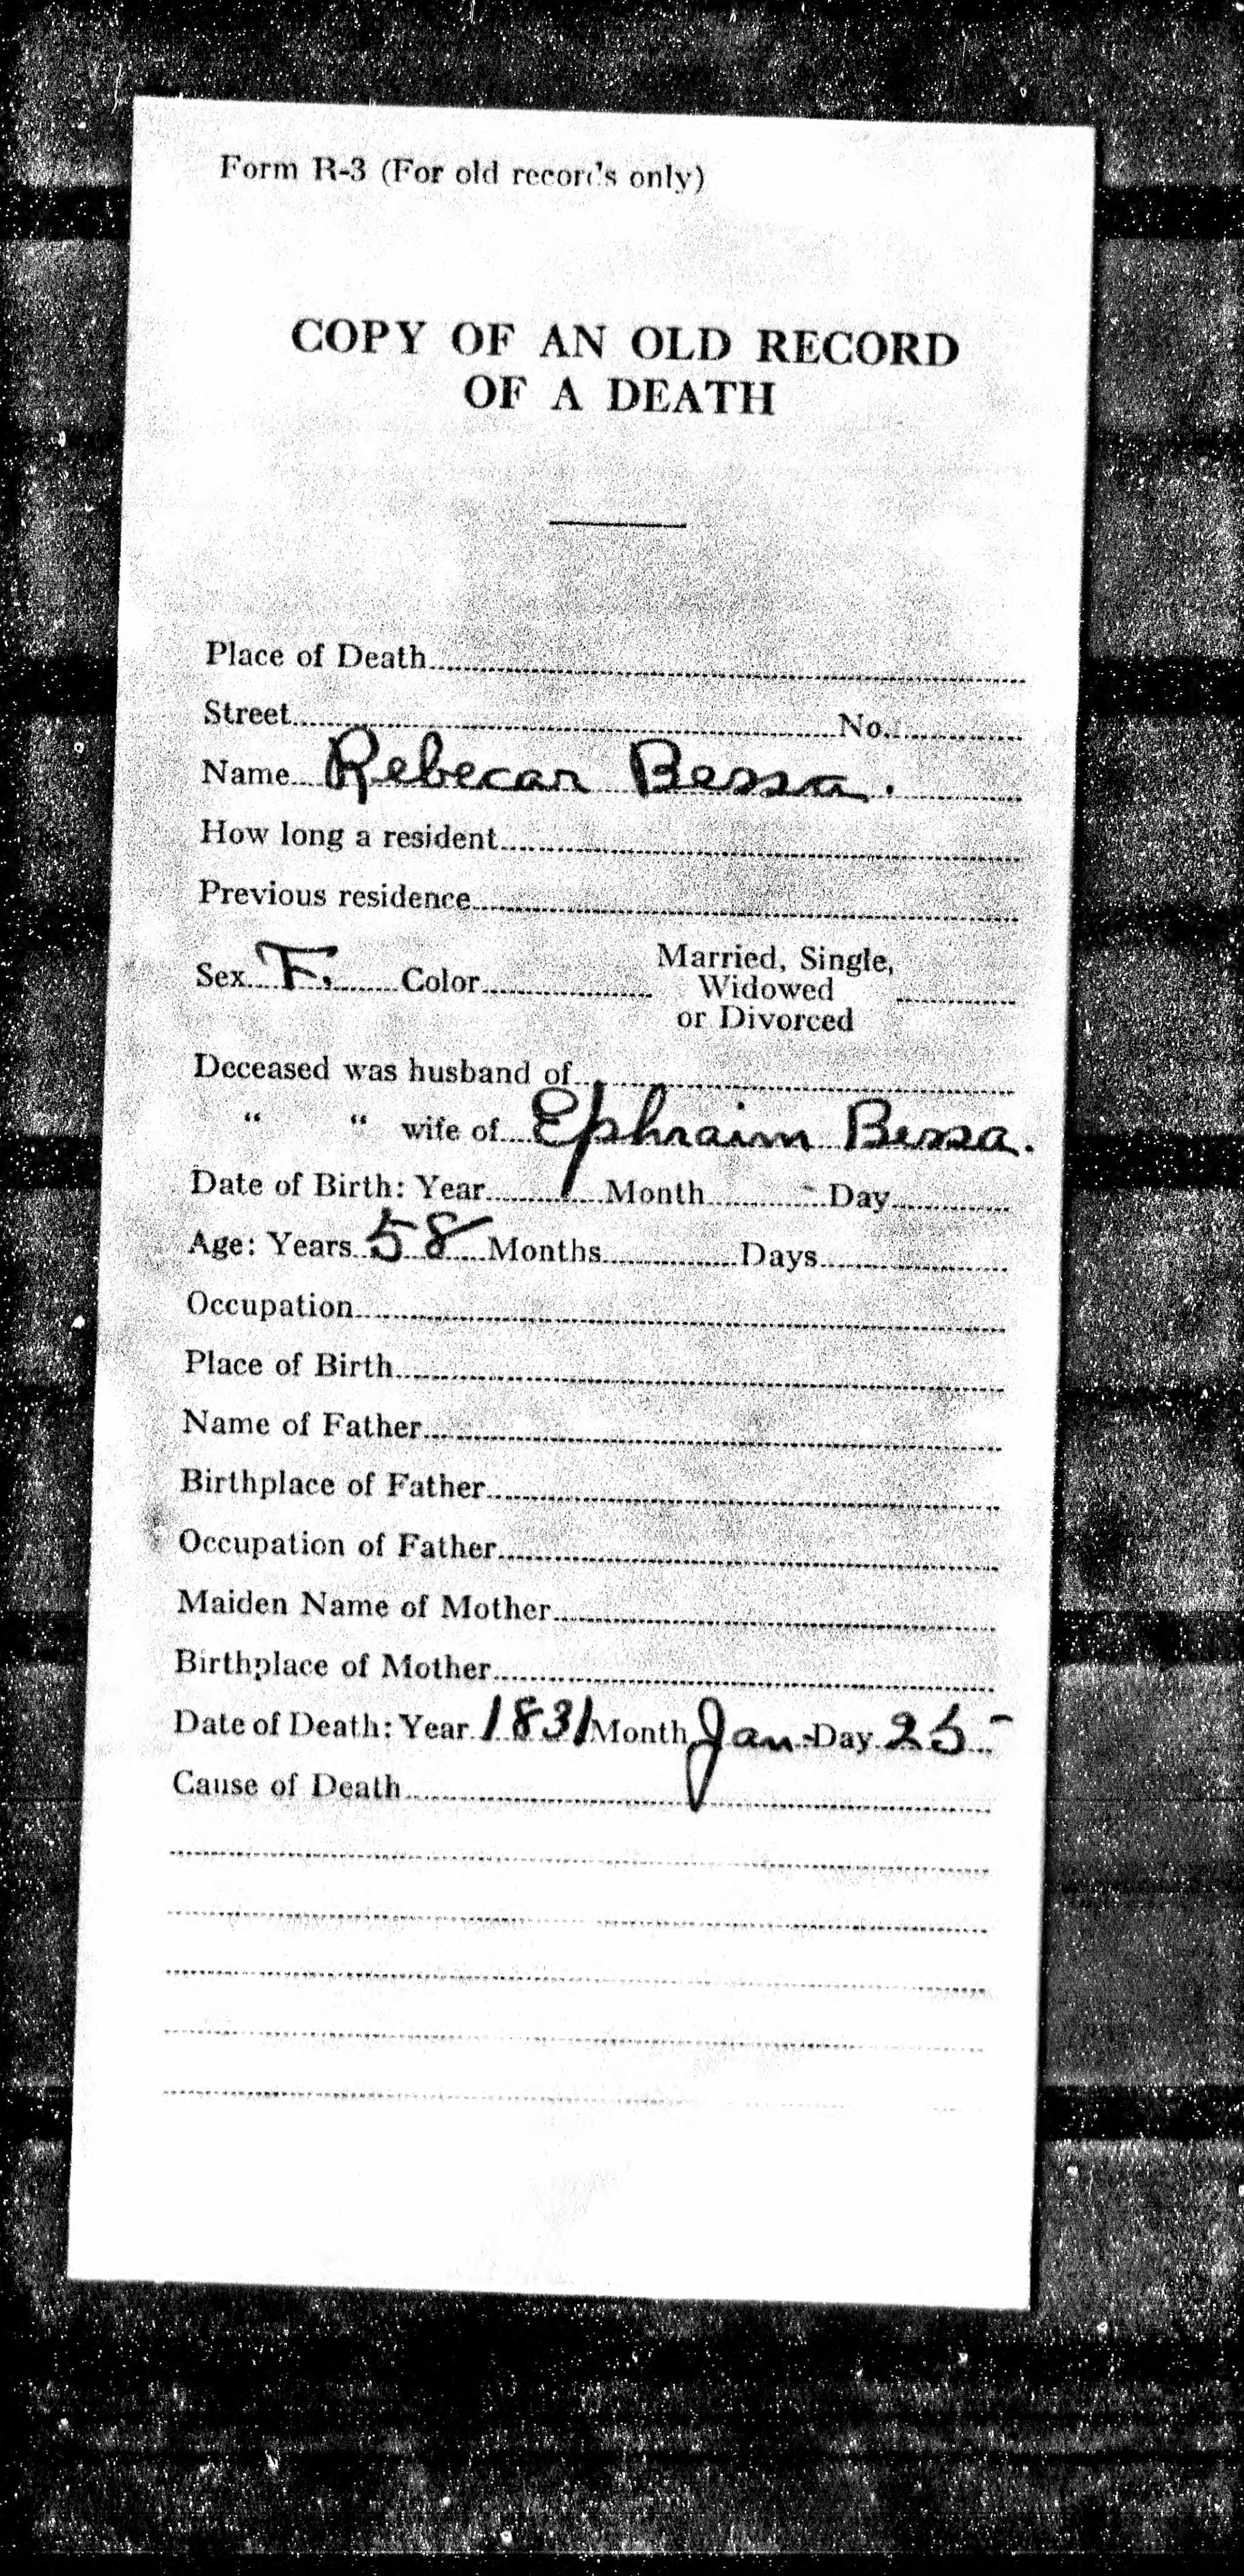 Form R-3 (For old records only)
COPY OF AN OLD RECORD
OF A DEATH
Place of Death
Street No.
Name Rebecar Bessa.
How long a resident
Previous residence
Sex F. Color Married, Single, Widowed or Divorced
Deceased was husband of
" " wife of Ephraim Bessa.
Date of Birth: Year Month Day
Age: Years 58 Months Days
Occupation
Place of Birth
Name of Father
Birthplace of Father
Occupation of Father
Maiden Name of Mother
Birthplace of Mother
Date of Death: Year 1831 Month Jan- Day 25
Cause of Death